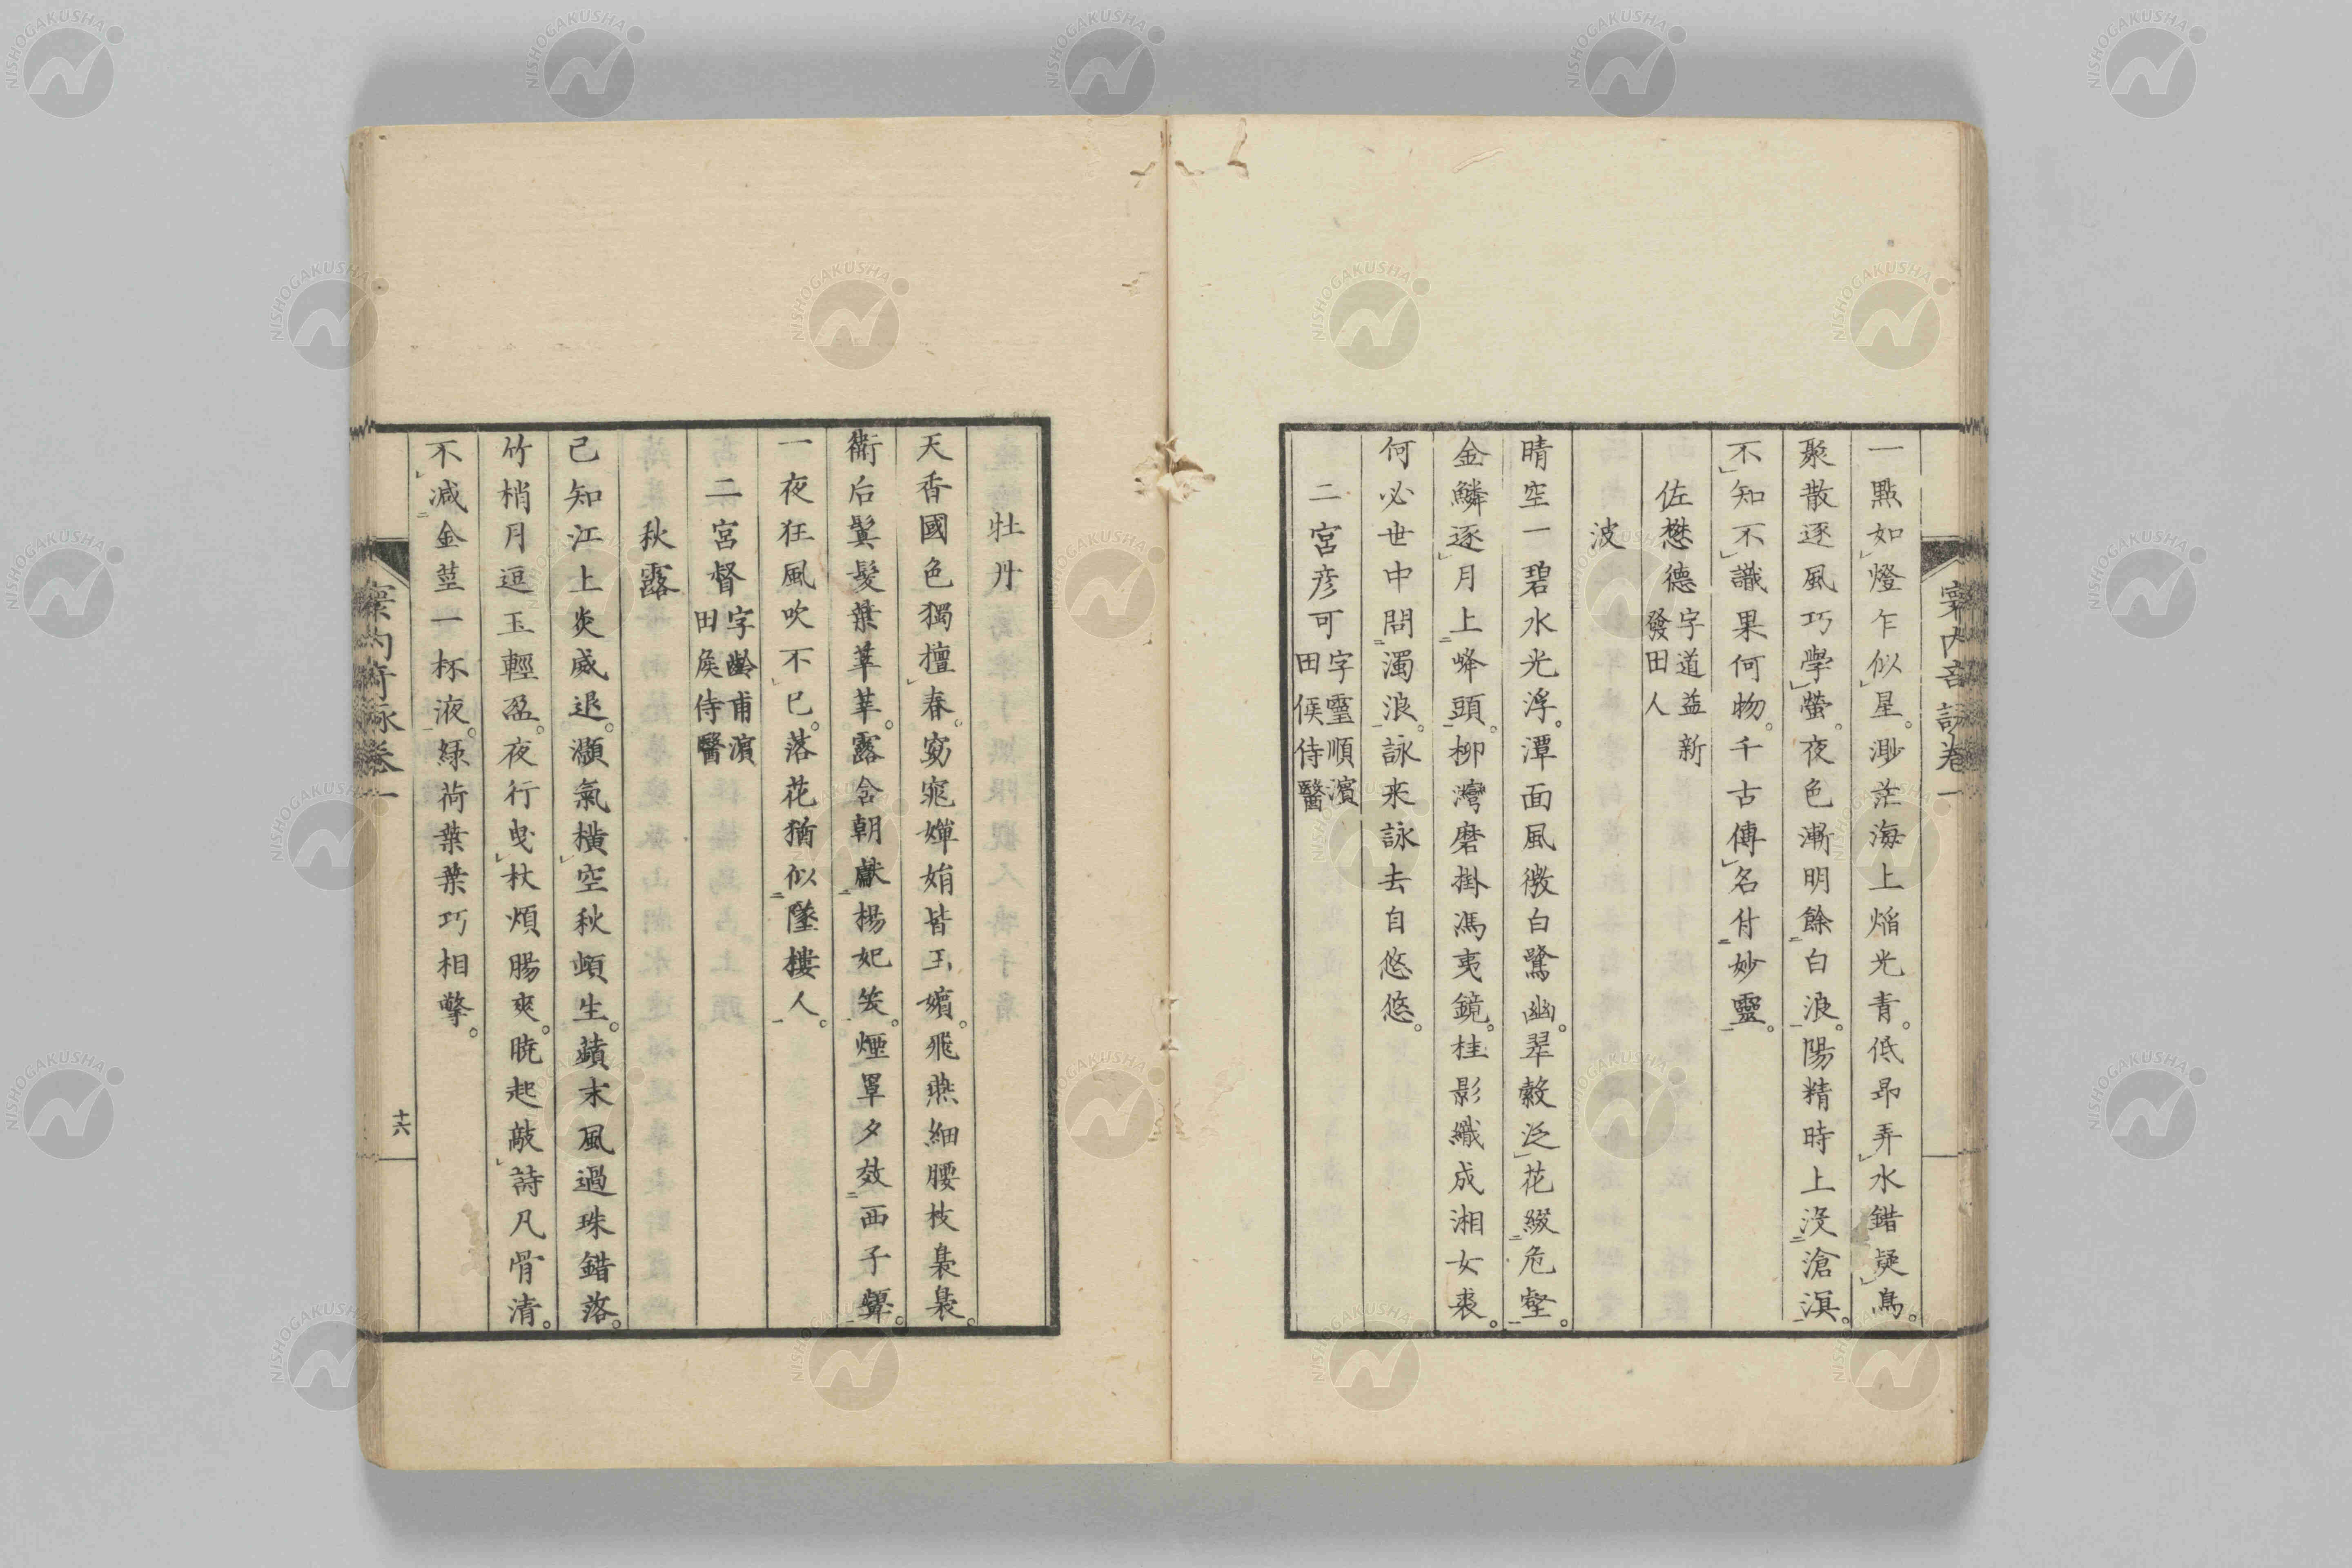 一點如燈乍似星。渺茫海上焔光青。低昻弄水錯疑鳥。
聚散逐風巧學螢。夜色漸明餘白浪。陽精時上沒滄溟。
不知不識果何物。千古傳名付妙靈。
佐懋德 字道益新發田人
波
晴空一碧水光浮。潭面風微白鷺幽。翠縠泛花綴危壑。
金鱗逐月上峰頭。柳灣磨掛馮夷鏡。桂影織成湘女裘。
何必世中問濁浪。詠來詠去自悠悠。
二宮彦可 字璽順濱田侯侍醫
牡丹
天香國色獨檀春。窈窕嬋娟皆玉嬪。飛燕細腰枝裊裊。
衛后鬒髮葉莘莘。露含朝獻楊妃笑。煙罩夕效西子顰。
一夜狂風吹不已。落花猶似墜樓人。
二宮督 字齡甫濱田侯侍醫
秋露
已知江上炎威退。灝氣橫空秋頓生。蘋末風過珠錯落。
竹梢月逗玉輕盈。夜行曳杖煩腸爽。暁起敲詩凡骨清。
不減金莖一杯液。綠荷葉葉巧相擎。
卷一
十六
NISHOGAKUSHA